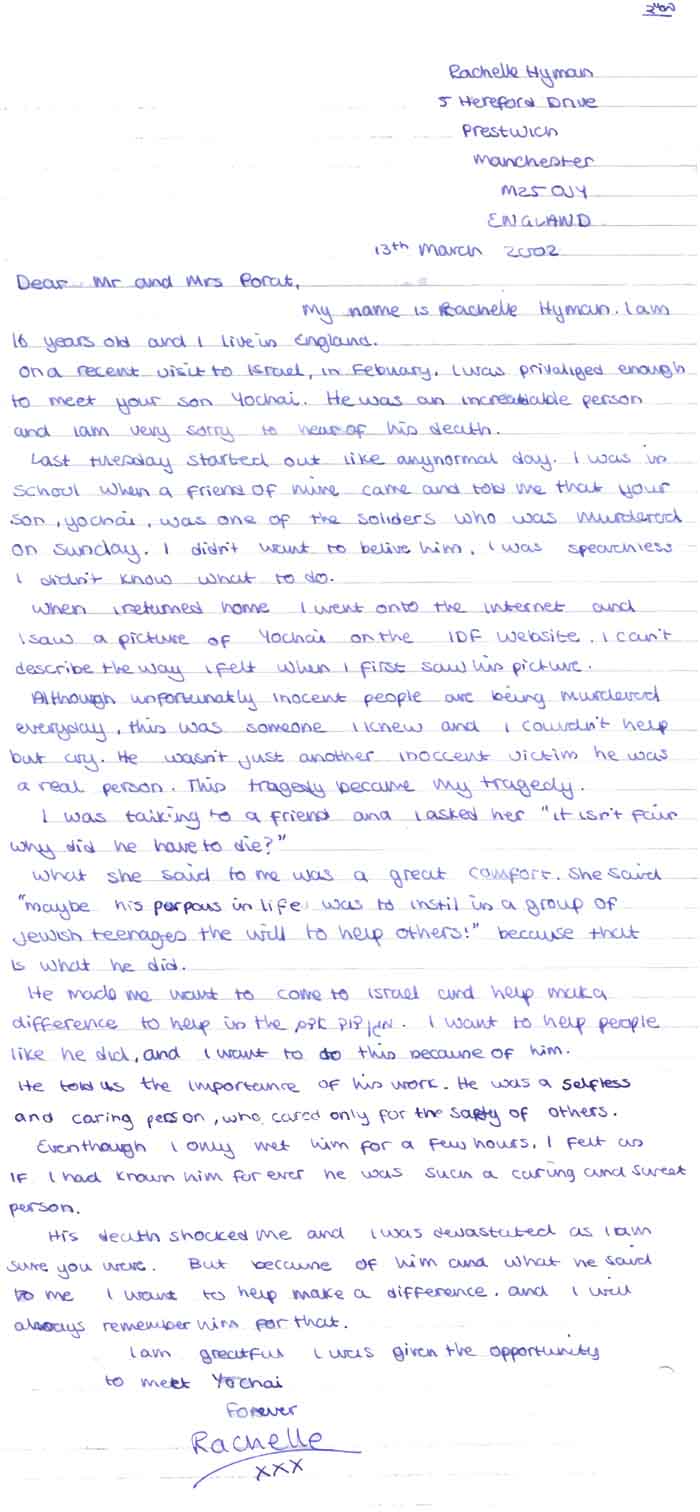 Rachelle Hyman
5 Hereford Drive
Prestwich
Manchester
M25 0JY
ENGLAND
13th March 2002
Dear Mr and Mrs Porat,
My name is Rachelle Hyman. I am
16 years old and I live in England.
On a recent visit to Israel, in Febuary, I was privaliged enough
to meet your son Yochai. He was an increadiable person
and I am very sorry to hear of his death.
Last tuesday started out like anynormal day. I was in
school when a friend of mine came and told me that your
son, yochai, was one of the soliders who was murdered
on Sunday. I didn't want to belive him. I was speachless
I didn't know what to do.
When I returned home I went onto the internet and
I saw a picture of Yochai on the IDF website. I can't
describe the way I felt when I first saw his picture.
Although unfortunatly inocent people are being murdered
everyday, this was someone I knew and I couldn't help
but cry. He wasn't just another inoccent victim he was
a real person. This tragedy became my tragedy.
I was talking to a friend and I asked her "it isn't fair
why did he have to die?"
What she said to me was a great comfort. She said
"maybe his porpous in life was to instil in a group of
Jewish teenages the will to help others!" because that
is what he did.
He made me want to come to Israel and help make a
difference to help in the מגן דוד אדום. I want to help people
like he did, and I want to do this because of him.
He told us the importance of his work. He was a selfless
and caring person, who cared only for the safty of others.
Eventhough I only met him for a few hours, I felt as
IF I had known him for ever he was such a caring and sweet
person.
His death shocked me and I was devastated as I am
sure you were. But because of him and what he said
to me I want to help make a difference. and I will
always remember him for that.
I am greatful I was given the opportunity
to meet Yochai
Forever
Rachelle
xxx